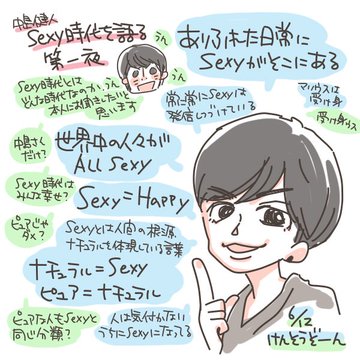 中嶋健人
Sexy時代を語る
第一夜
うん
うん
うん
Sexy時代とは
どんな時代なのか、
本人にお聞きしたいと
思います
ありふれた日常に
Sexyがそこにある
常に常にSexyは
発信しつづけている
マリウスは
受け身
受け身リウス
中嶋さん
だけ?
世界中の人々が
ALL Sexy
Sexy時代は
みんな幸せ?
Sexy=Happy
ピュアじゃ
ダメ?
Sexyとは人間の根源
ナチュラルを体現している言葉
ナチュラル=Sexy
ピュア=ナチュラル
ピュアな人もSexyと
同じ分類?
人は気付かない
うちにSexyになってる
6/12
けんとぅぞーん